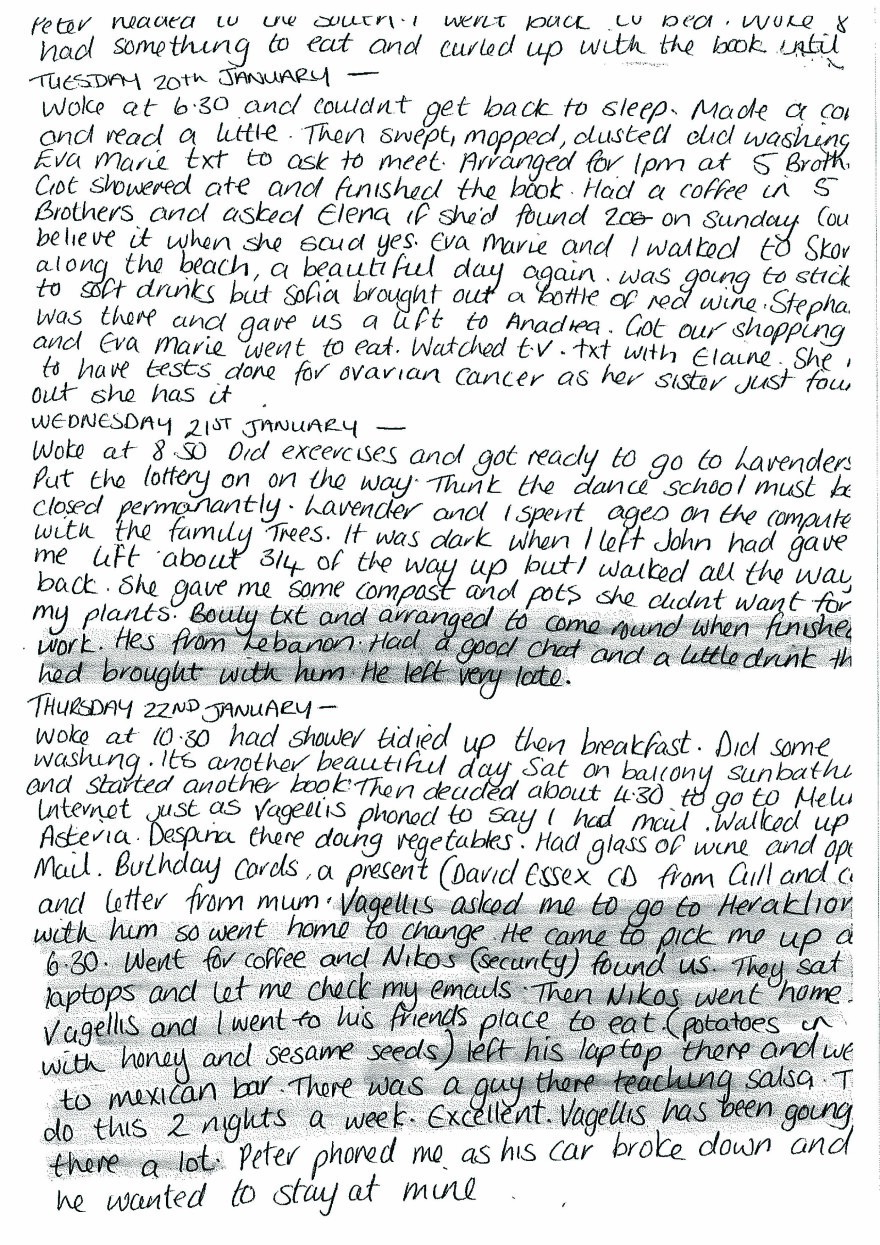 Peter headed to the south. I went back to bed. Woke 8
had something to eat and curled up with the book until
TUESDAY 20th JANUARY —
Woke at 6.30 and couldnt get back to sleep. Made a
and read a little. Then swept, mopped, dusted did washing
Eva Marie txt to ask to meet. Arranged for 1pm at 5 Broth
Got showered ate and finished the book. Had a coffee in 5
Brothers and asked Elena if she'd found 200 on Sunday Cou
believe it when she said yes. Eva Marie and I walked to Skor
along the beach, a beautiful day again. was going to stick
to soft drinks but Sofia brought out a bottle of red wine. Stepha
was there and gave us a lift to Anadrea. Got our shopping
and Eva Marie went to eat. Watched t.v. txt with Elaine. She
to have tests done for ovarian cancer as her sister just fou
out she has it
WEDNESDAY 21ST JANUARY —
Woke at 8.50 Did exeercises and got ready to go to Lavenders
Put the lottery on on the way. Think the dance school must be
closed permanantly. Lavender and I spent ages on the compute
with the family Trees. It was dark when I left John had gave
me lift about 3/4 of the way up but I walked all the way
back. She gave me some compost and pots she didnt want for
my plants. Bouly txt and arranged to come round when finishe
work. Hes from Lebanon. Had a good chat and a little drink th
hed brought with him. He left very late.
THURSDAY 22ND JANUARY —
Woke at 10.30 had shower tidied up then breakfast. Did some
washing. Its another beautiful day Sat on balcony sunbathi
and started another book. Then decided about 4.30 to go to Melu
Internet just as Vagellis phoned to say I had mail. Walked up
Asteria. Despina there doing vegetables. Had glass of wine and ope
Mail. Birthday Cards, a present (David Essex CD from Gill and
and letter from mum. Vagellis asked me to go to Heraklion
with him so went home to change. He came to pick me up a
6.30. Went for coffee and Nikos (security) found us. They sat
laptops and let me check my emails. Then Nikos went home.
Vagellis and I went to his friends place to eat (potatoes in
with honey and sesame seeds) left his laptop there and we
to mexican bar. There was a guy there teaching salsa. T
do this 2 nights a week. Excellent. Vagellis has been going
there a lot. Peter phoned me as his car broke down and
he wanted to stay at mine